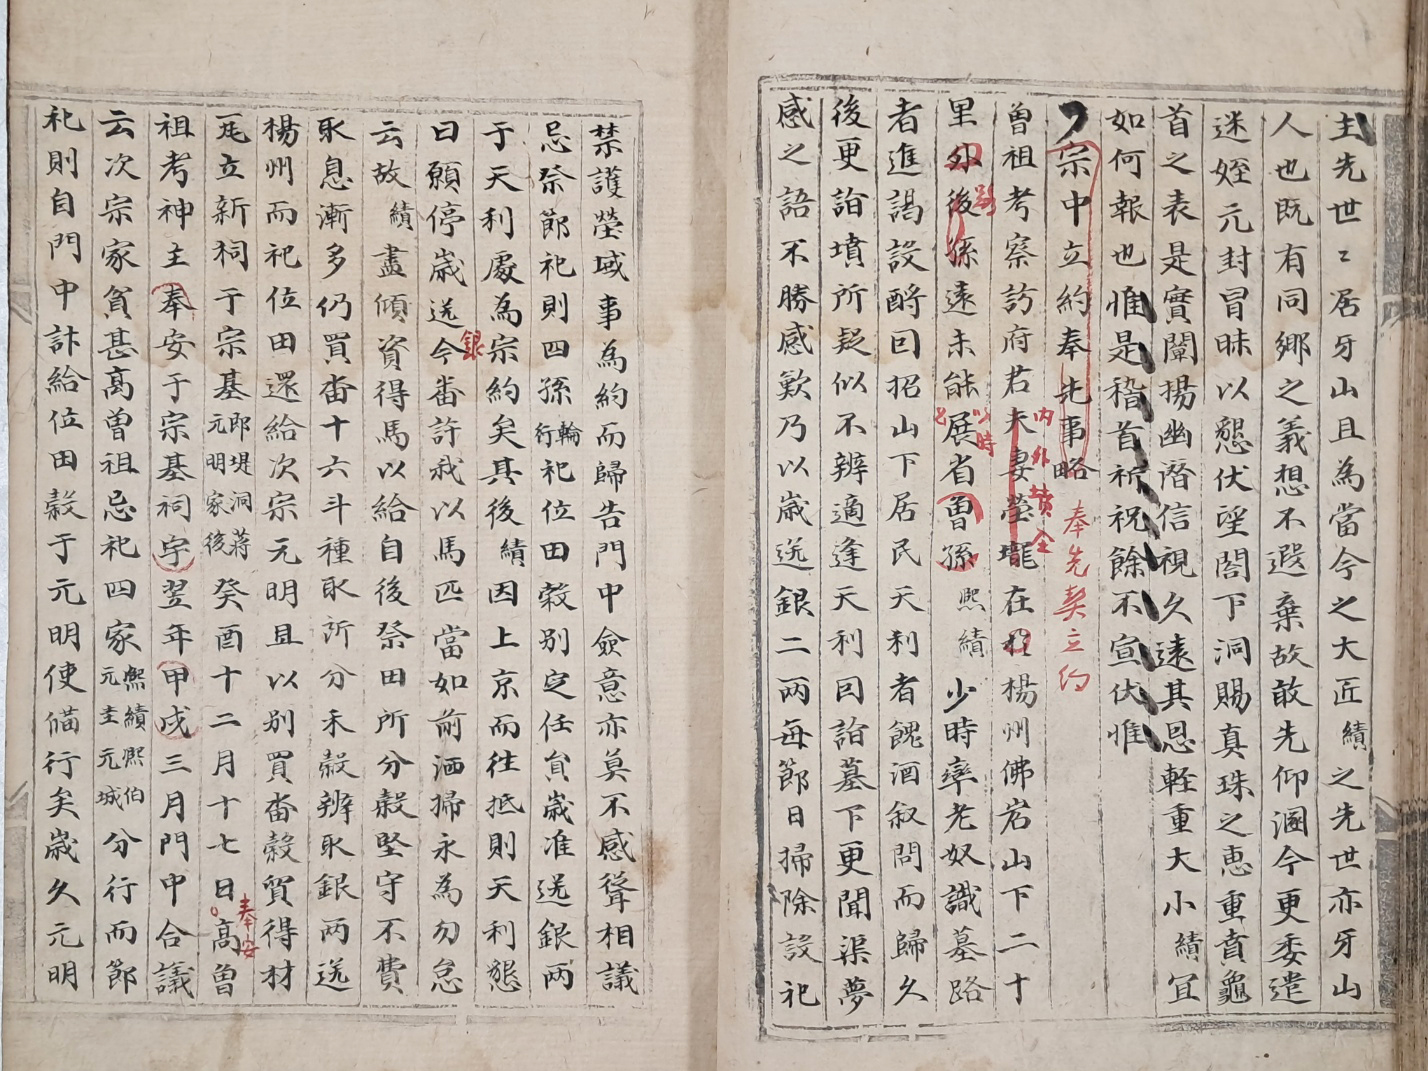 主先世〻居牙山且為當今之大匠績之先世亦牙山
人也既有同鄉之義想不遐棄故敢先仰溷今更委遣
迷姪元封冒昧以懇伏望閤下洞賜真珠之惠重賁龜
首之表是實闡揚幽潛信視久遠其恩輕重大小績宜
如何報也惟是稽首祈祝餘不宣伏惟
宗中立約奉先事略
奉先契立約
曾祖考察訪府君夫妻塋壠在楊州佛岩山下二十
内外墳全
里外後孫遠未能展省曾孫熙績少時率老奴識墓路
以時
者進謁設酹因招山下居民天利者餽酒叙問而歸久
後更詣墳所疑似不辨適逢天利因詣墓下更聞渠夢
感之語不勝感歎乃以歲送銀二兩每節日掃除設祀
禁護塋域事為約而歸告門中僉意亦莫不感聳相議
忌祭節祀則四孫輪行祀位田穀別定任員歲准送銀兩
于天利處為宗約矣其後績因上京而往抵則天利懇
銀
曰願停歲送今番許我以馬匹當如前洒掃永為勿怠
云故績盡傾資得馬以給自後祭田所分穀堅守不費
取息漸多仍買畓十六斗種取所分禾穀辨取銀兩送
楊州而祀位田還給次宗元明且以別買畓穀貿得材
瓦立新祠于宗基郎堤洞蔣元明家後癸酉十二月十七日高曾
奉安
祖考神主奉安于宗基祠宇翌年甲戌三月門中合議
云次宗家貧甚高曾祖忌祀四家熙績熙伯元圭元城分行而節
祀則自門中計給位田穀于元明使備行矣歲久元明